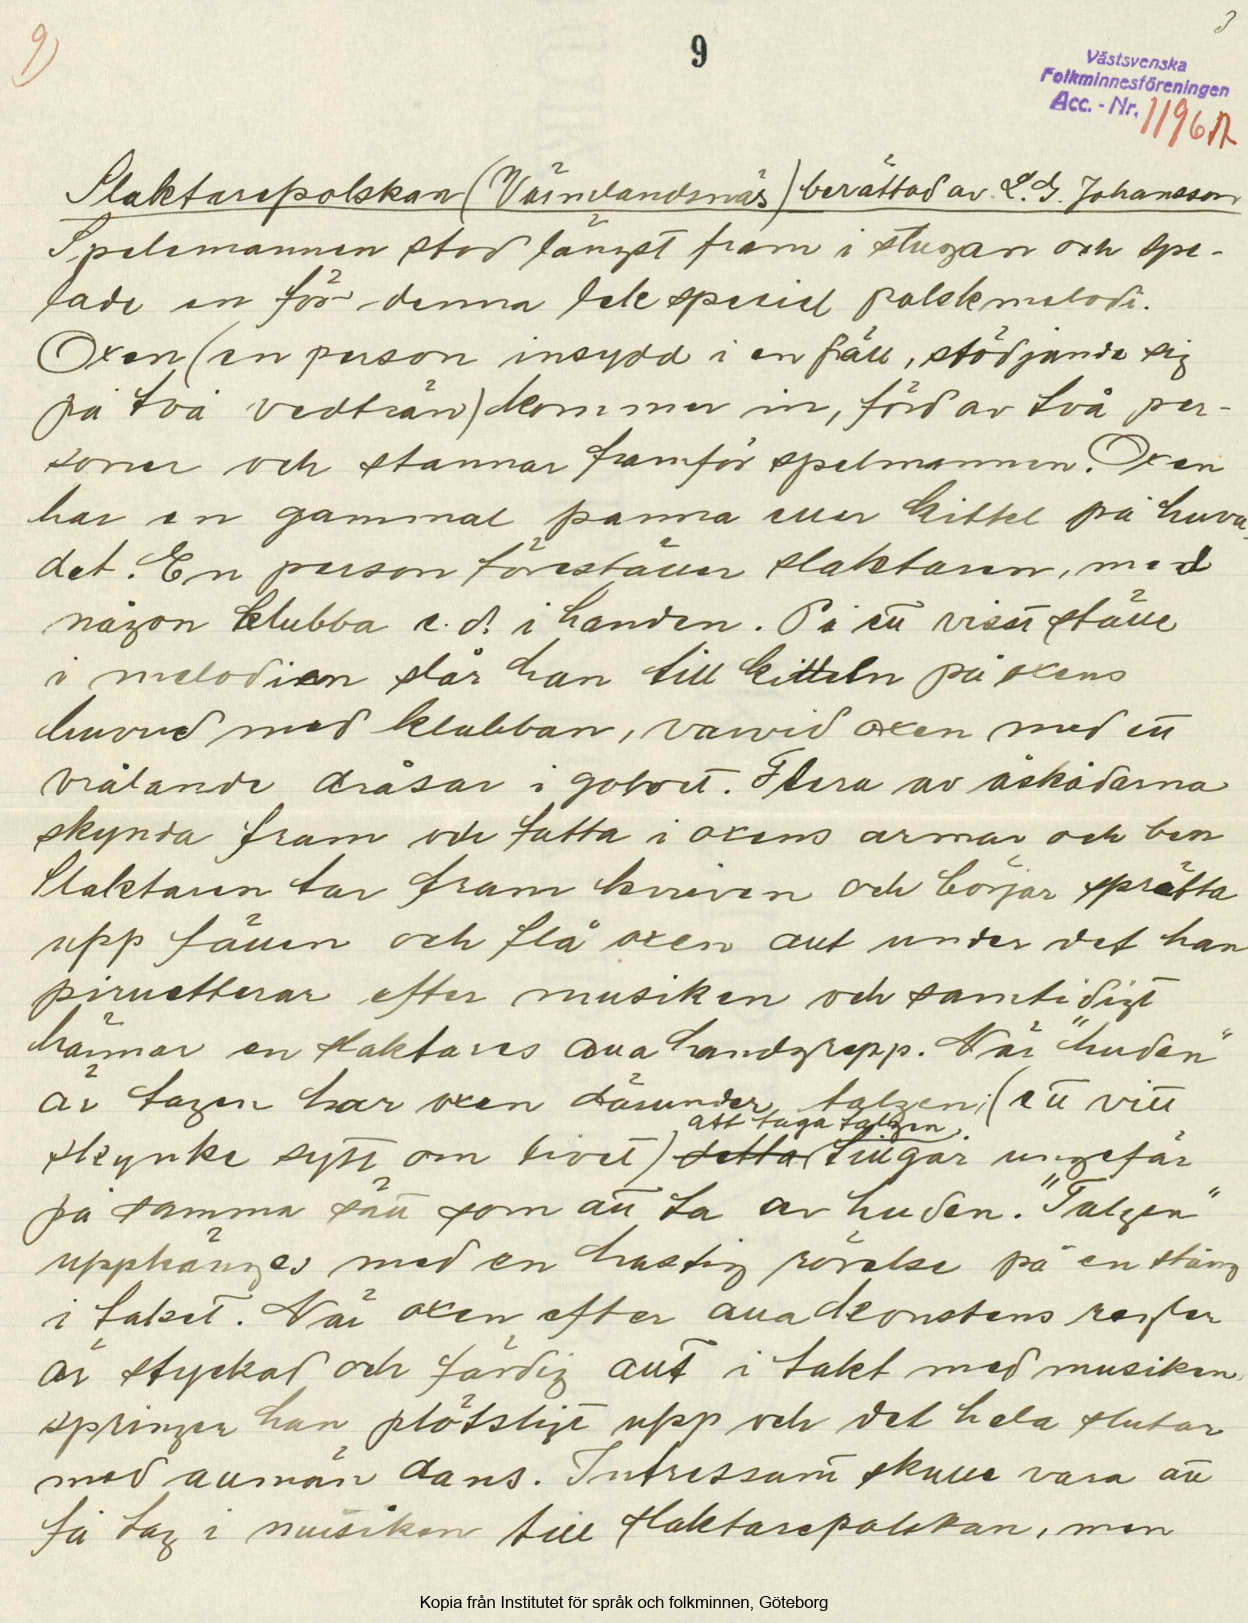 9)
9
3
Västsvenska
Folkminnesföreningen
Acc. - Nr. 1196 A
Slaktarepolskan (Värmlandsnäs) berättad av L. G. Johansson
Spelemannen stod längst fram i stugan och spe-
lade en för denna lek speciel polskmelodi.
Oxen (en person insydd i en fäll, stödjande sig
på två vedträn) kommer in, förd av två per-
soner och stannar framför spelmannen. Oxen
har en gammal panna eller kittel på huvu-
det. En person föreställer slaktaren, med
någon klubba e. d. i handen. På ett visst ställe
i melodien slår han till kitteln på oxens
huvud med klubban, varvid oxen med ett
vrålande dråsar i golvet. Flera av åskådarna
skynda fram och fatta i oxens armar och ben
Slaktaren tar fram kniven och börjar sprätta
upp fällen och flå oxen allt under det han
piruetterar efter musiken och samtidigt
härmar en slaktares alla handgrepp. När "huden"
är tagen har oxen därunder talgen; (ett vitt
att taga talgen
skynke sytt om livet) detta tillgår ungefär
på samma sätt som att ta av huden. "Talgen"
upphänges med en hastig rörelse på en stång
i taket. När oxen efter alla konstens regler
är styckad och färdig allt i takt med musiken
springer han plötsligt upp och det hela slutar
med allmän dans. Intressant skulle vara att
få tag i musiken till slaktarepolskan, men
Kopia från Institutet för språk och folkminnen, Göteborg